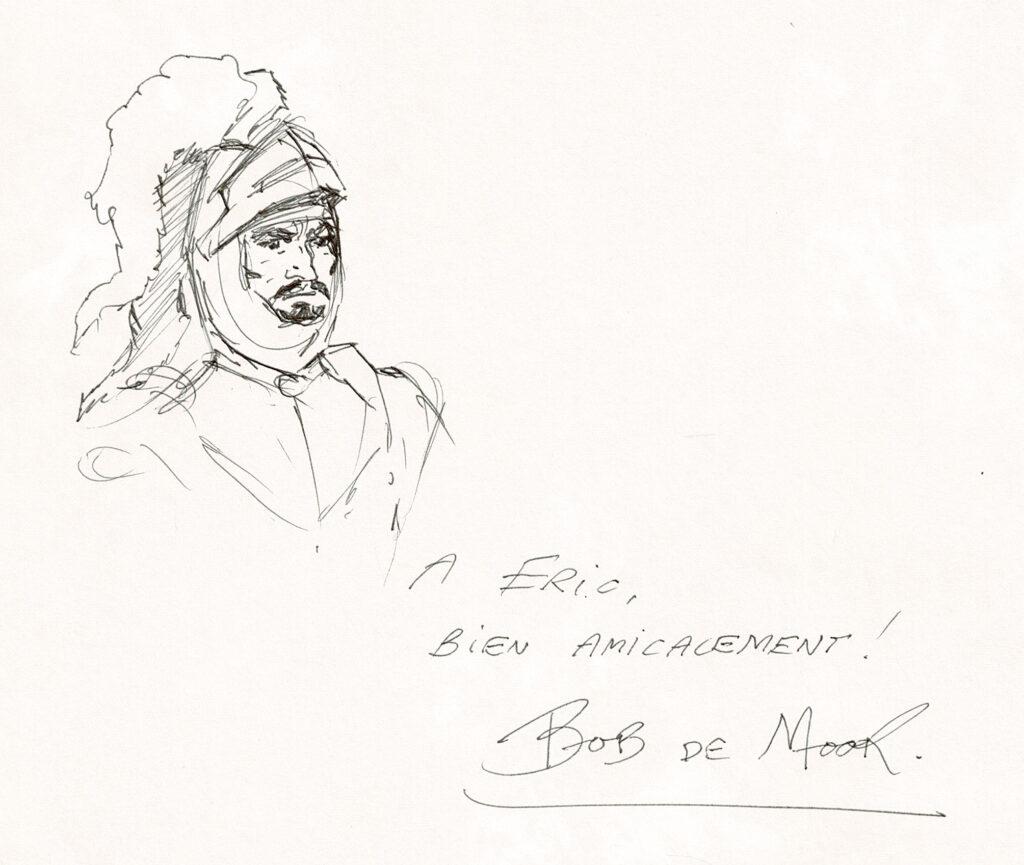 A ERIC,
BIEN AMICALEMENT !
BOB DE MOOR.